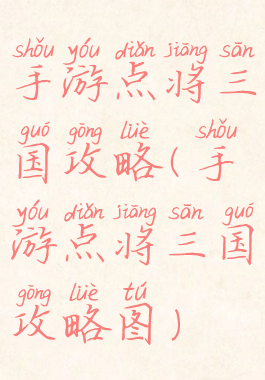 shǒu yóu diǎn jiāng sān
手游点将三
guó gōng lüè shǒu
国攻略(手
yóu diǎn jiāng sān guó
游点将三国
gōng lüè tú
攻略图)